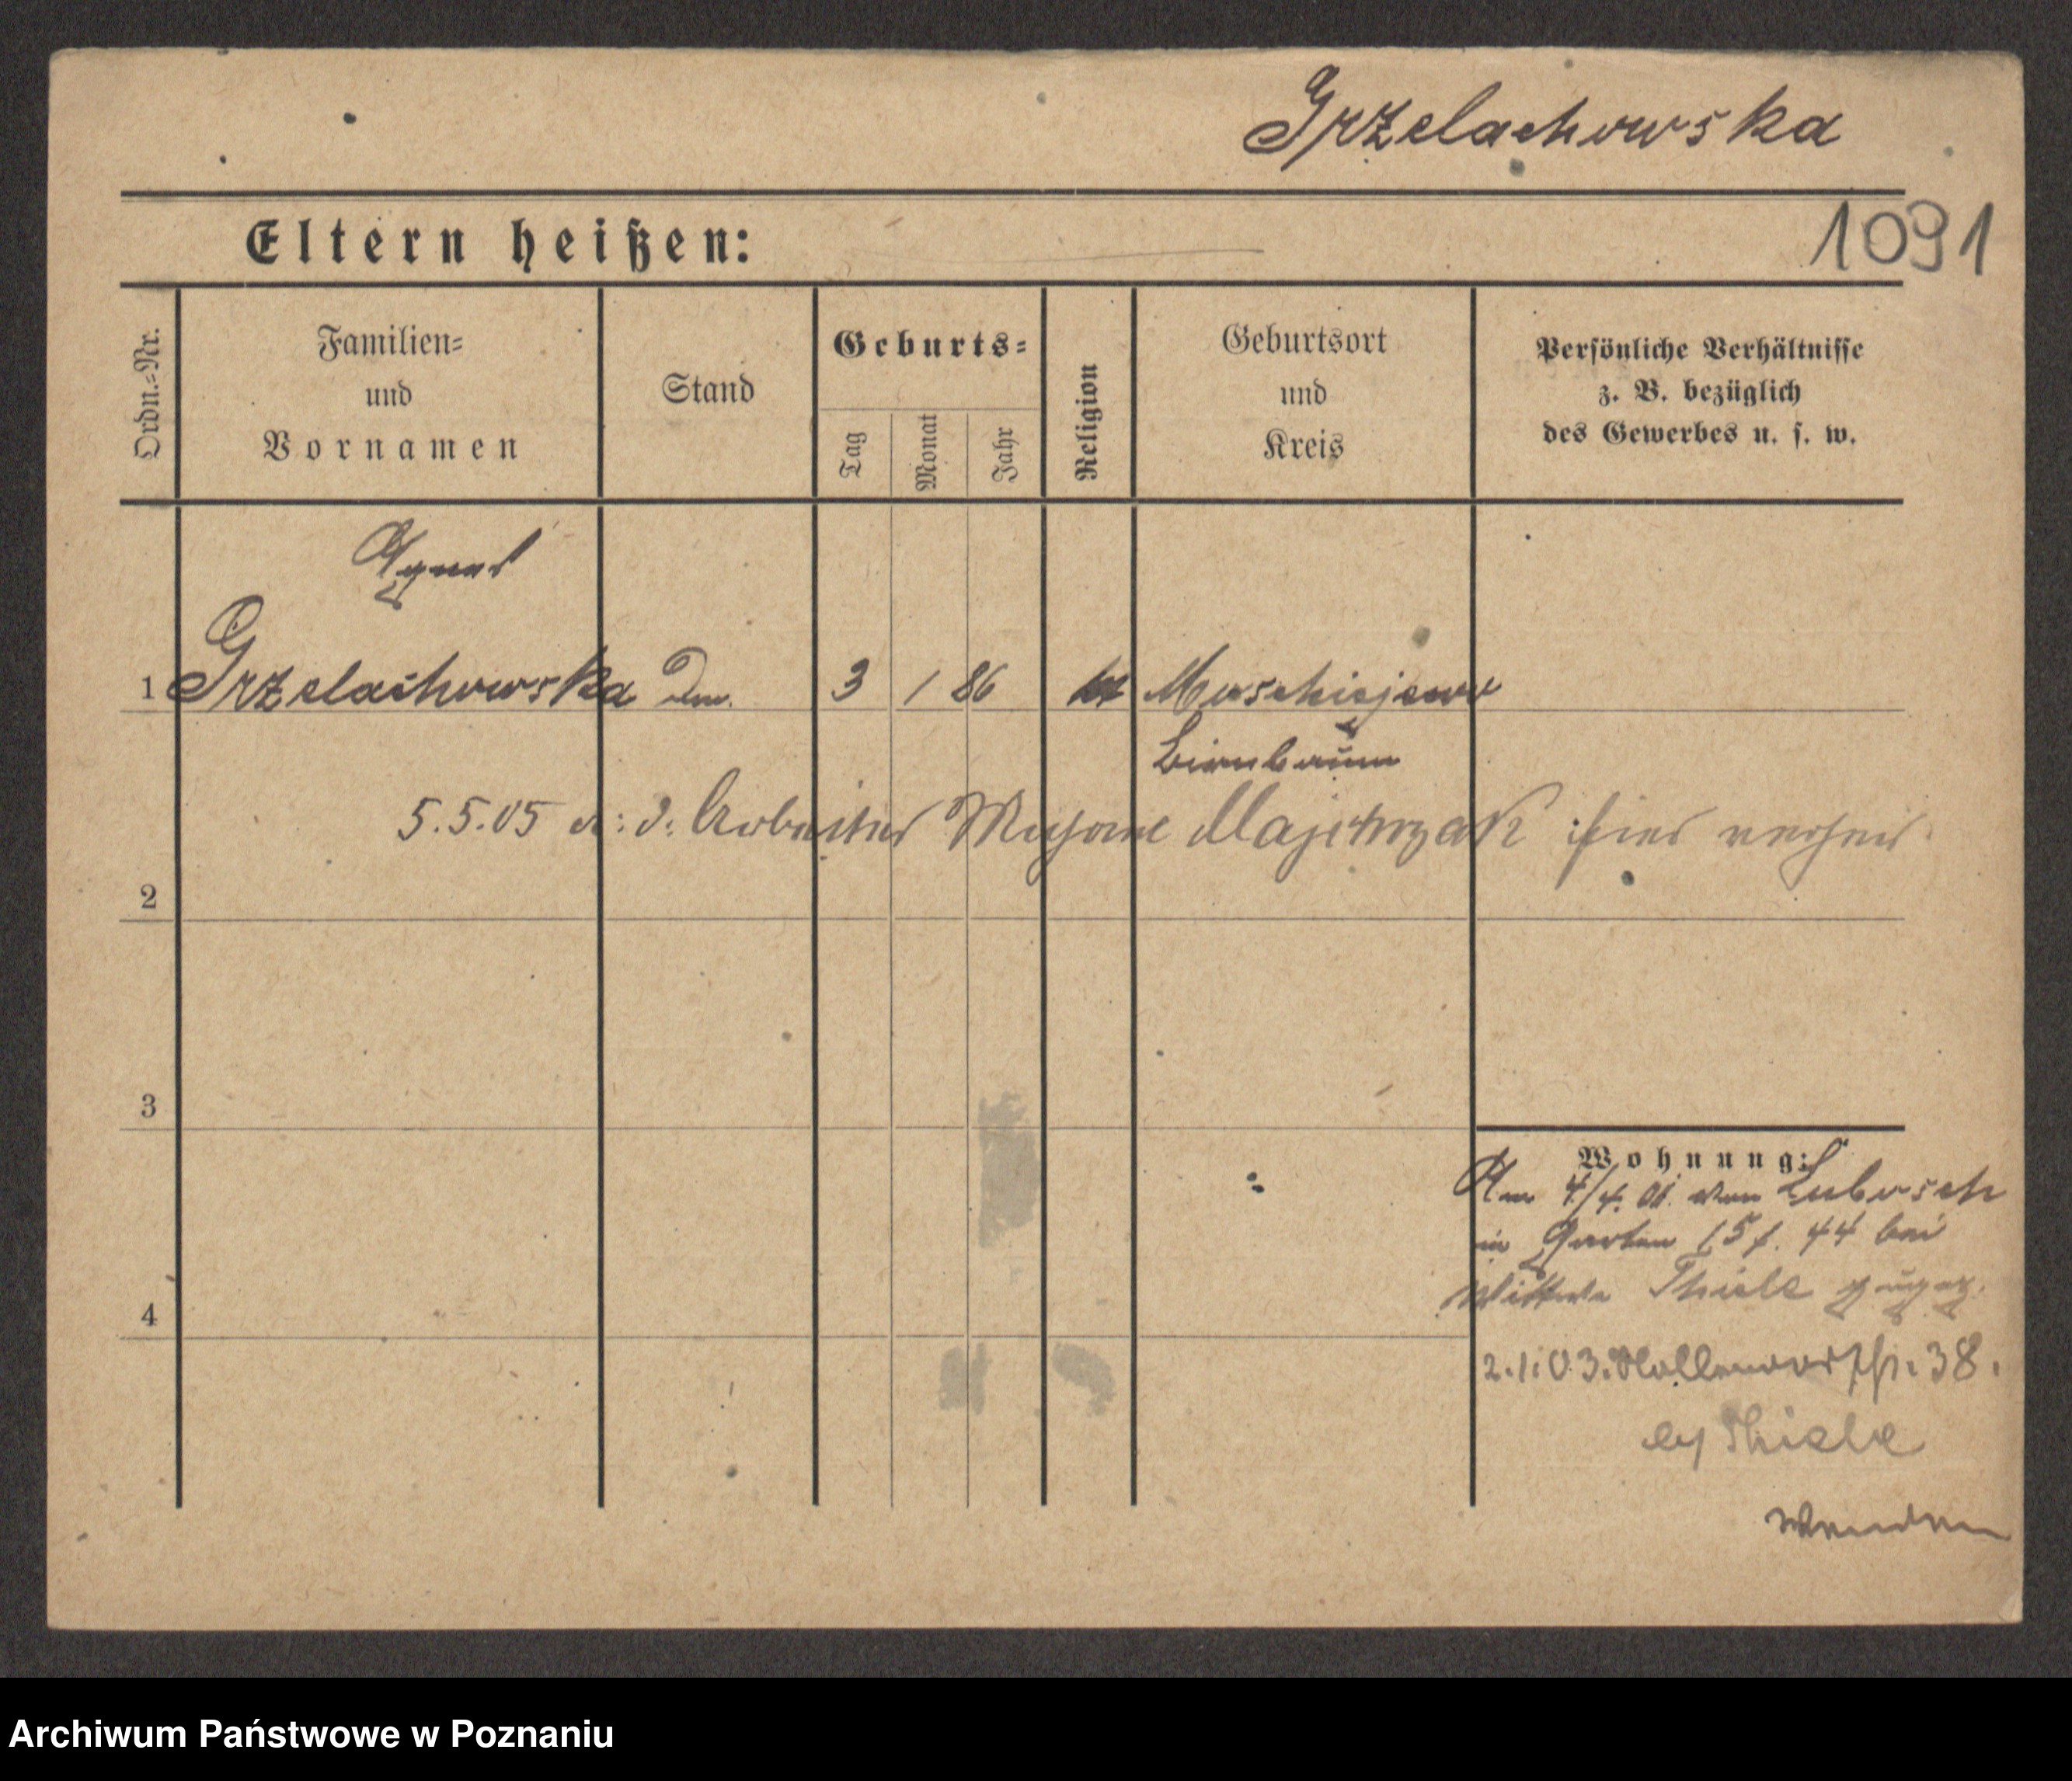 Grzelachowska
1091
Eltern heißen:
Ordn.-Nr.
Familien-
und
Vornamen
Stand
Geburts-
Tag
Monat
Jahr
Religion
Geburtsort
und
Kreis
Persönliche Verhältnisse
z. B. bezüglich
des Gewerbes u. s. w.
Agnes
1 Grzelachowska 3 1 86 Muschiejewo
Birnbaum
5.5.05 m: d. Arbeiter Majchrzak hier
2
3
4
Wohnung:
Am 4/4. 01. von Lubosch
in Garten 44 bei
Wittwe Thiele zugez.
2.1.03. 38.
by Thiele
Wenden
Archiwum Państwowe w Poznaniu